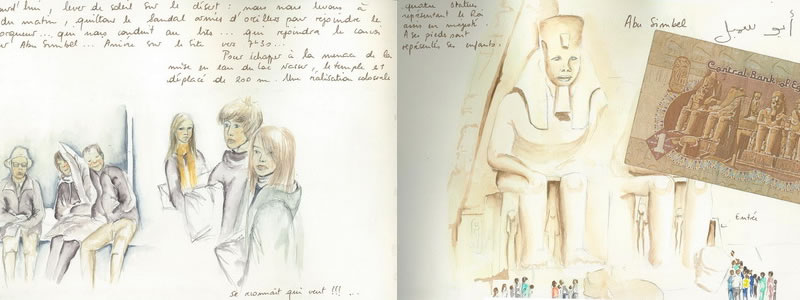 lever de soleil sur le désert : nous nous levons à
du matin, quittons le landal armés d'oreillers pour rejoindre le
qui nous conduit au bus... qui rejoindra le convoi
Abu Simbel... Arrivée sur le site vers 7h30...
Pour échapper à la menace de la
mise en eau du Lac Nasser, le temple est
déplacé de 200 m. Une réalisation colossale
se reconnait qui veut !!! ...
quatre statues
représentant le Roi
assis en majesté
A ses pieds sont
représentés ses enfants.
Abu Simbel
أبو سمبل
5
Central Bank of E
1
Entrée